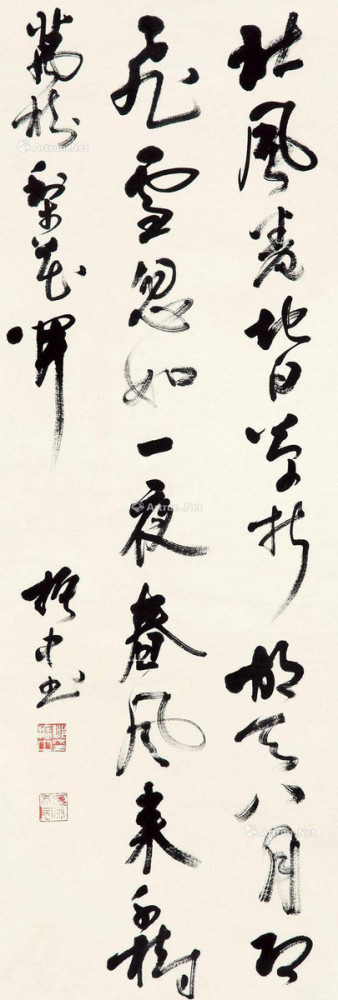 北風卷地白草折胡天八月即
飛雪忽如一夜春风来千樹
萬樹梨花開
书
Artron.Net